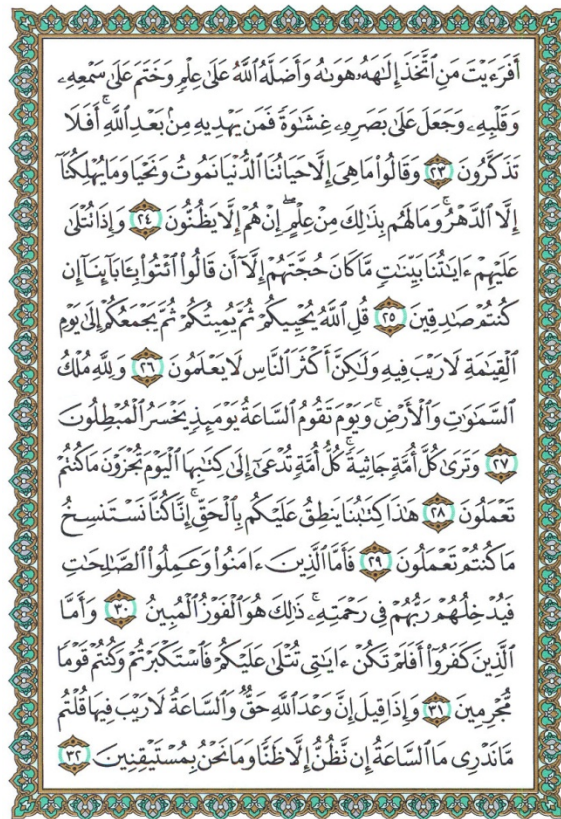 أَفَرَءَيۡتَ مَنِ ٱتَّخَذَ إِلَٰهَهُۥ هَوَىٰهُ وَأَضَلَّهُ ٱللَّهُ عَلَىٰ عِلۡمٖ وَخَتَمَ عَلَىٰ سَمۡعِهِۦ
وَقَلۡبِهِۦ وَجَعَلَ عَلَىٰ بَصَرِهِۦ غِشَٰوَةٗ فَمَن يَهۡدِيهِ مِنۢ بَعۡدِ ٱللَّهِۚ أَفَلَا
تَذَكَّرُونَ ٢٣ وَقَالُواْ مَا هِيَ إِلَّا حَيَاتُنَا ٱلدُّنۡيَا نَمُوتُ وَنَحۡيَا وَمَا يُهۡلِكُنَآ
إِلَّا ٱلدَّهۡرُۚ وَمَا لَهُم بِذَٰلِكَ مِنۡ عِلۡمٍۖ إِنۡ هُمۡ إِلَّا يَظُنُّونَ ٢٤ وَإِذَا تُتۡلَىٰ
عَلَيۡهِمۡ ءَايَٰتُنَا بَيِّنَٰتٖ مَّا كَانَ حُجَّتَهُمۡ إِلَّآ أَن قَالُواْ ٱئۡتُواْ بِـَٔابَآئِنَآ إِن
كُنتُمۡ صَٰدِقِينَ ٢٥ قُلِ ٱللَّهُ يُحۡيِيكُمۡ ثُمَّ يُمِيتُكُمۡ ثُمَّ يَجۡمَعُكُمۡ إِلَىٰ يَوۡمِ
ٱلۡقِيَٰمَةِ لَا رَيۡبَ فِيهِ وَلَٰكِنَّ أَكۡثَرَ ٱلنَّاسِ لَا يَعۡلَمُونَ ٢٦ وَلِلَّهِ مُلۡكُ
ٱلسَّمَٰوَٰتِ وَٱلۡأَرۡضِۚ وَيَوۡمَ تَقُومُ ٱلسَّاعَةُ يَوۡمَئِذٖ يَخۡسَرُ ٱلۡمُبۡطِلُونَ
٢٧ وَتَرَىٰ كُلَّ أُمَّةٖ جَاثِيَةٗۚ كُلُّ أُمَّةٖ تُدۡعَىٰٓ إِلَىٰ كِتَٰبِهَا ٱلۡيَوۡمَ تُجۡزَوۡنَ مَا كُنتُمۡ
تَعۡمَلُونَ ٢٨ هَٰذَا كِتَٰبُنَا يَنطِقُ عَلَيۡكُم بِٱلۡحَقِّۚ إِنَّا كُنَّا نَسۡتَنسِخُ
مَا كُنتُمۡ تَعۡمَلُونَ ٢٩ فَأَمَّا ٱلَّذِينَ ءَامَنُواْ وَعَمِلُواْ ٱلصَّٰلِحَٰتِ
فَيُدۡخِلُهُمۡ رَبُّهُمۡ فِي رَحۡمَتِهِۦۚ ذَٰلِكَ هُوَ ٱلۡفَوۡزُ ٱلۡمُبِينُ ٣٠ وَأَمَّا
ٱلَّذِينَ كَفَرُوٓاْ أَفَلَمۡ تَكُنۡ ءَايَٰتِي تُتۡلَىٰ عَلَيۡكُمۡ فَٱسۡتَكۡبَرۡتُمۡ وَكُنتُمۡ قَوۡمٗا
مُّجۡرِمِينَ ٣١ وَإِذَا قِيلَ إِنَّ وَعۡدَ ٱللَّهِ حَقّٞ وَٱلسَّاعَةُ لَا رَيۡبَ فِيهَا قُلۡتُم
مَّا نَدۡرِي مَا ٱلسَّاعَةُ إِن نَّظُنُّ إِلَّا ظَنّٗا وَمَا نَحۡنُ بِمُسۡتَيۡقِنِينَ ٣٢